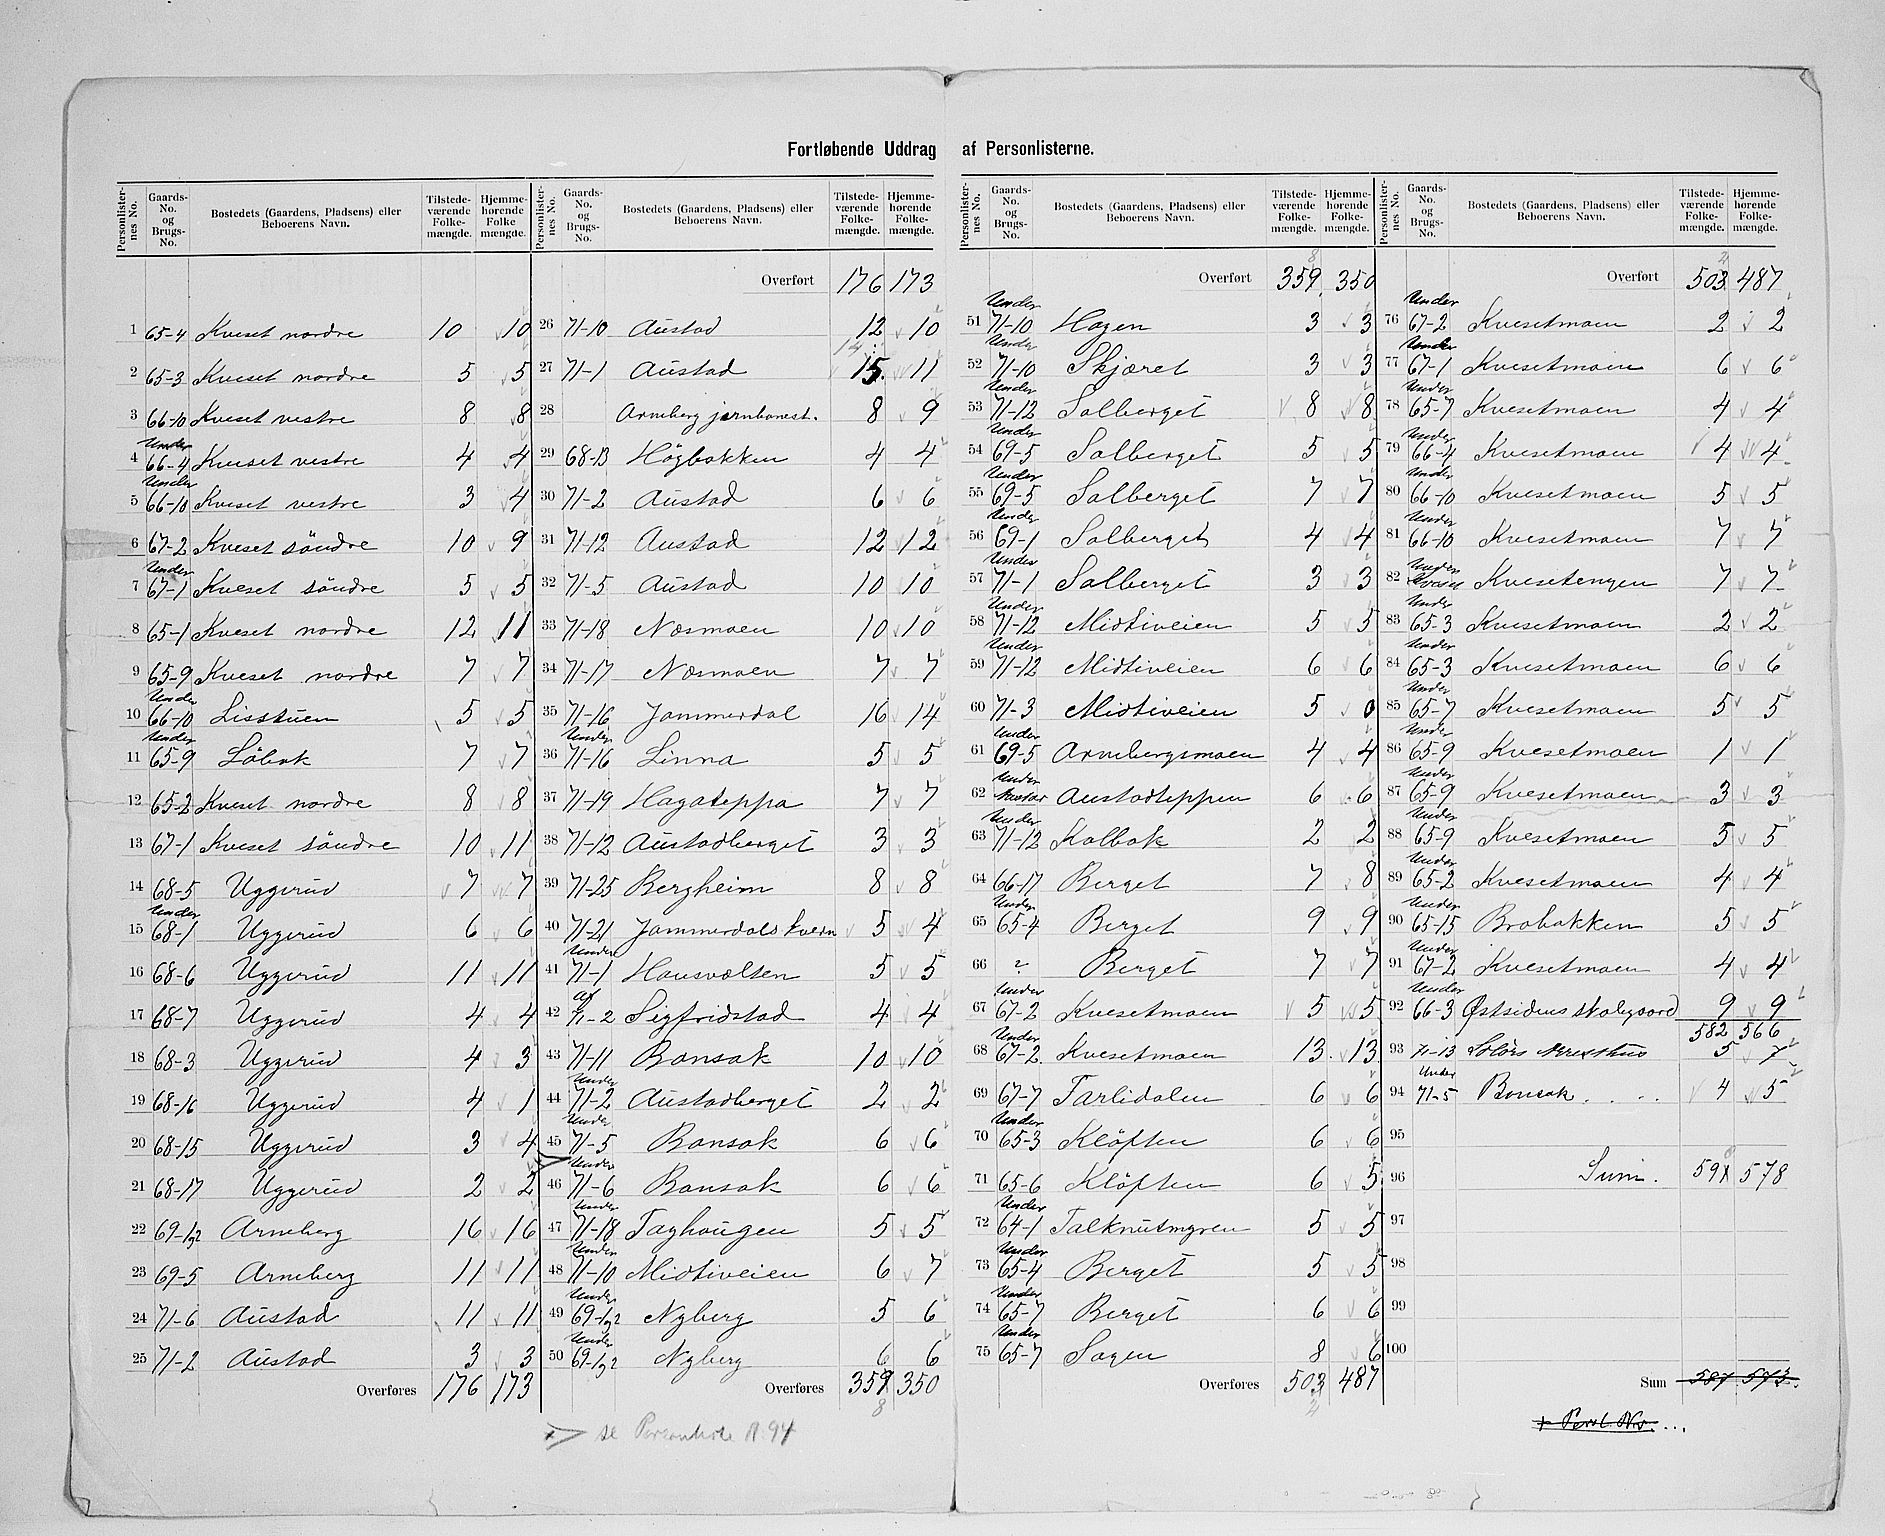 Fortløbende Uddrag af Personlisterne.
Personlisternes No. Gaards-No. og Brugs-No. Bostedets (Gaardens, Pladsens) eller Beboerens Navn. Tilstedeværende Folkemængde. Hjemmehørende Folkemængde.
1 65-4 Kveset nordre 10 10
2 65-3 Kveset nordre 5 5
3 66-10 Kveset vestre 8 8
4 Under 66-4 Kveset vestre 4 4
5 Under 66-10 Kveset vestre 3 4
6 67-2 Kveset söndre 10 9
7 Under 67-1 Kveset söndre 5 5
8 65-1 Kveset nordre 12 11
9 65-9 Kveset nordre 7 7
10 Under 66-10 Lisstuen 5 5
11 Under 65-9 Löbak 7 7
12 65-2 Kveset nordre 8 8
13 67-1 Kveset söndre 10 11
14 68-5 Uggerud 7 7
15 Under 68-1 Uggerud 6 6
16 68-6 Uggerud 11 11
17 68-7 Uggerud 4 4
18 68-3 Uggerud 4 3
19 68-16 Uggerud 4 1
20 68-15 Uggerud 3 4
21 68-17 Uggerud 2 2
22 69-1,2 Arneberg 16 16
23 69-5 Arneberg 11 11
24 71-6 Austad 11 11
25 71-2 Austad 3 3
Overføres 176 173
Personlisternes No. Gaards-No. og Brugs-No. Bostedets (Gaardens, Pladsens) eller Beboerens Navn. Tilstedeværende Folkemængde. Hjemmehørende Folkemængde.
Overført 176 173
26 71-10 Austad 12 10
27 71-1 Austad 14 15 11
28 Arneberg jernbanest. 8 9
29 68-13 Högbakken 4 4
30 71-2 Austad 6 6
31 71-12 Austad 12 12
32 71-5 Austad 10 10
33 71-18 Næsmoen 10 10
34 71-17 Næsmoen 7 7
35 71-16 Jammerdal 16 14
36 Under 71-16 Linna 5 5
37 71-19 Hagateppa 7 7
38 71-12 Austadberget 3 3
39 71-25 Bergheim 8 8
40 71-21 Jammerdals kvern 5 4
41 Under 71-1 Hausvolten 5 5
42 Af 71-2 Sigfridstad 4 4
43 71-11 Bansak 10 10
44 Under 71-2 Austadberget 2 2
45 Under 71-5 Bansak 6 6
46 Under 71-6 Bansak 6 6
47 Under 71-18 Taghougen 5 5
48 Under 71-10 Midtiveien 6 7
49 Under 69-1,2 Nyberg 5 6
50 Under 69-1,2 Nyberg 6 6
Overføres 359 350
8
se Personliste N. 94
Personlisternes No. Gaards-No. og Brugs-No. Bostedets (Gaardens, Pladsens) eller Beboerens Navn. Tilstedeværende Folkemængde. Hjemmehørende Folkemængde.
8
Overført 359 350
51 Under 71-10 Hagen 3 3
52 Under 71-10 Skjæret 3 3
53 Under 71-12 Solberget 8 8
54 Under 69-5 Solberget 5 5
55 Under 69-5 Solberget 7 7
56 Under 69-1 Solberget 4 4
57 Under 71-1 Solberget 3 3
58 Under 71-12 Midtiveien 5 5
59 Under 71-12 Midtiveien 6 6
60 71-3 Midtiveien 5 0
61 Under 69-5 Arnebergsmoen 4 4
62 Under Austad Austadteppen 6 6
63 Under 71-12 Kolbak 2 2
64 66-17 Berget 7 8
65 Under 65-4 Berget 9 9
66 ? Berget 7 7
67 Under 67-2 Kvesetmoen 5 5
68 Under 67-2 Kvesetmoen 13 13
69 67-7 Tarlidalen 6 6
70 Under 65-3 Klöften 6 6
71 65-6 Klöften 6 5
72 Under 64-1 Talknutmyren 5 5
73 Under 65-4 Berget 5 5
74 Under 65-7 Berget 6 6
75 Under 65-7 Sagen 8 6
Overføres 503 487
2
Personlisternes No. Gaards-No. og Brugs-No. Bostedets (Gaardens, Pladsens) eller Beboerens Navn. Tilstedeværende Folkemængde. Hjemmehørende Folkemængde.
2
Overført 503 487
76 Under 67-2 Kvesetmoen 2 2
77 Under 67-1 Kvesetmoen 6 6
78 Under 65-7 Kvesetmoen 4 4
79 Under 66-4 Kvesetmoen 4 4
80 Under 66-10 Kvesetmoen 5 5
81 Under 66-10 Kvesetmoen 7 7
82 Under Kveset Kvesetengen 7 7
83 Under 65-3 Kvesetmoen 2 2
84 Under 65-3 Kvesetmoen 6 6
85 Under 65-7 Kvesetmoen 5 5
86 Under 65-9 Kvesetmoen 1 1
87 Under 65-9 Kvesetmoen 3 3
88 Under 65-9 Kvesetmoen 5 5
89 Under 65-2 Kvesetmoen 4 4
90 Under 65-15 Brobakken 5 5
91 Under 67-2 Kvesetmoen 4 4
92 Under 66-3 Østsidens skolegaard 9 9
582 566
93 71-13 Solörs 5 7
94 Under 71-5 Bonsak. . . . 4 5
95
96 Sum. 591 578
97
98
99
100
Sum 587 573.
+ Persl. No. ...